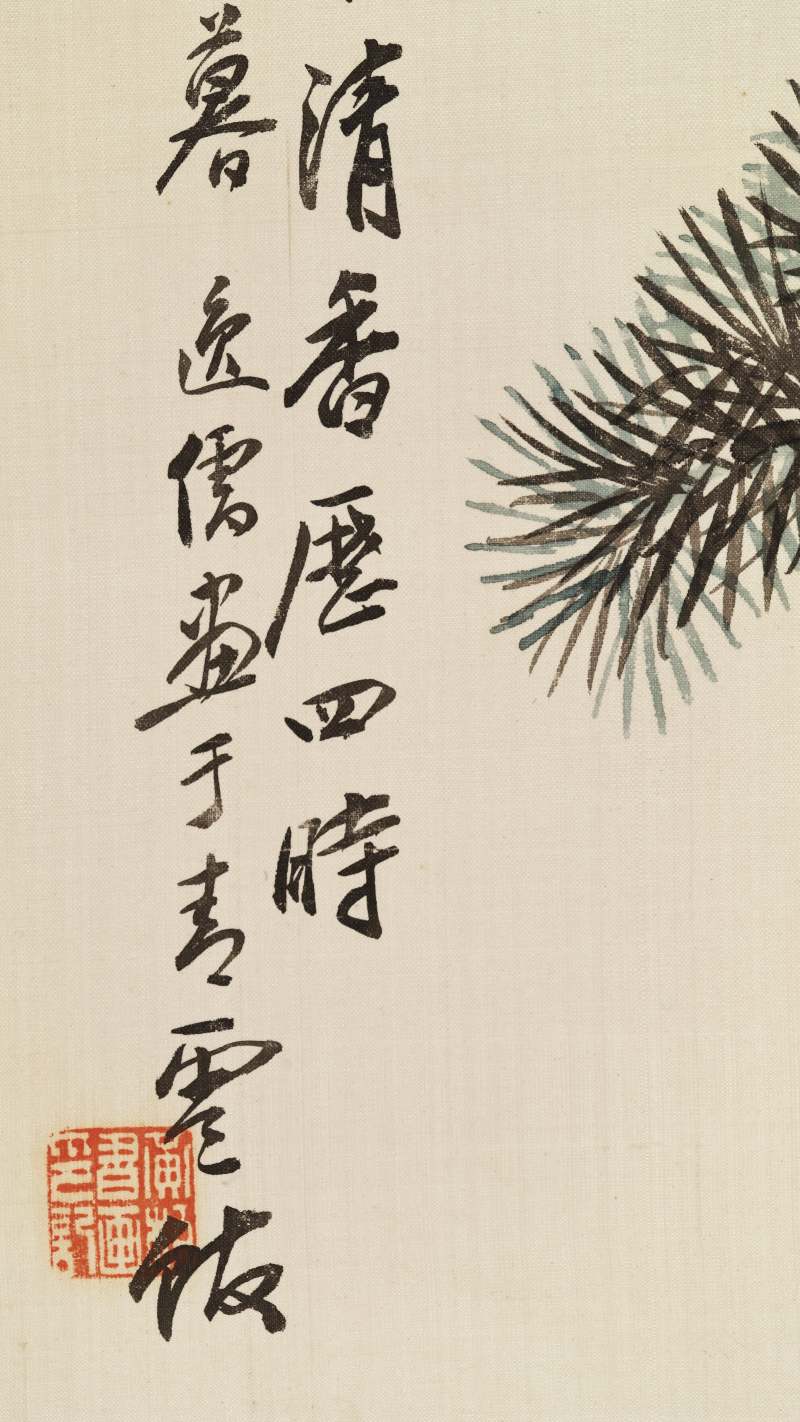 清香歷四時
暮 逸儒畫于青雲
書畫